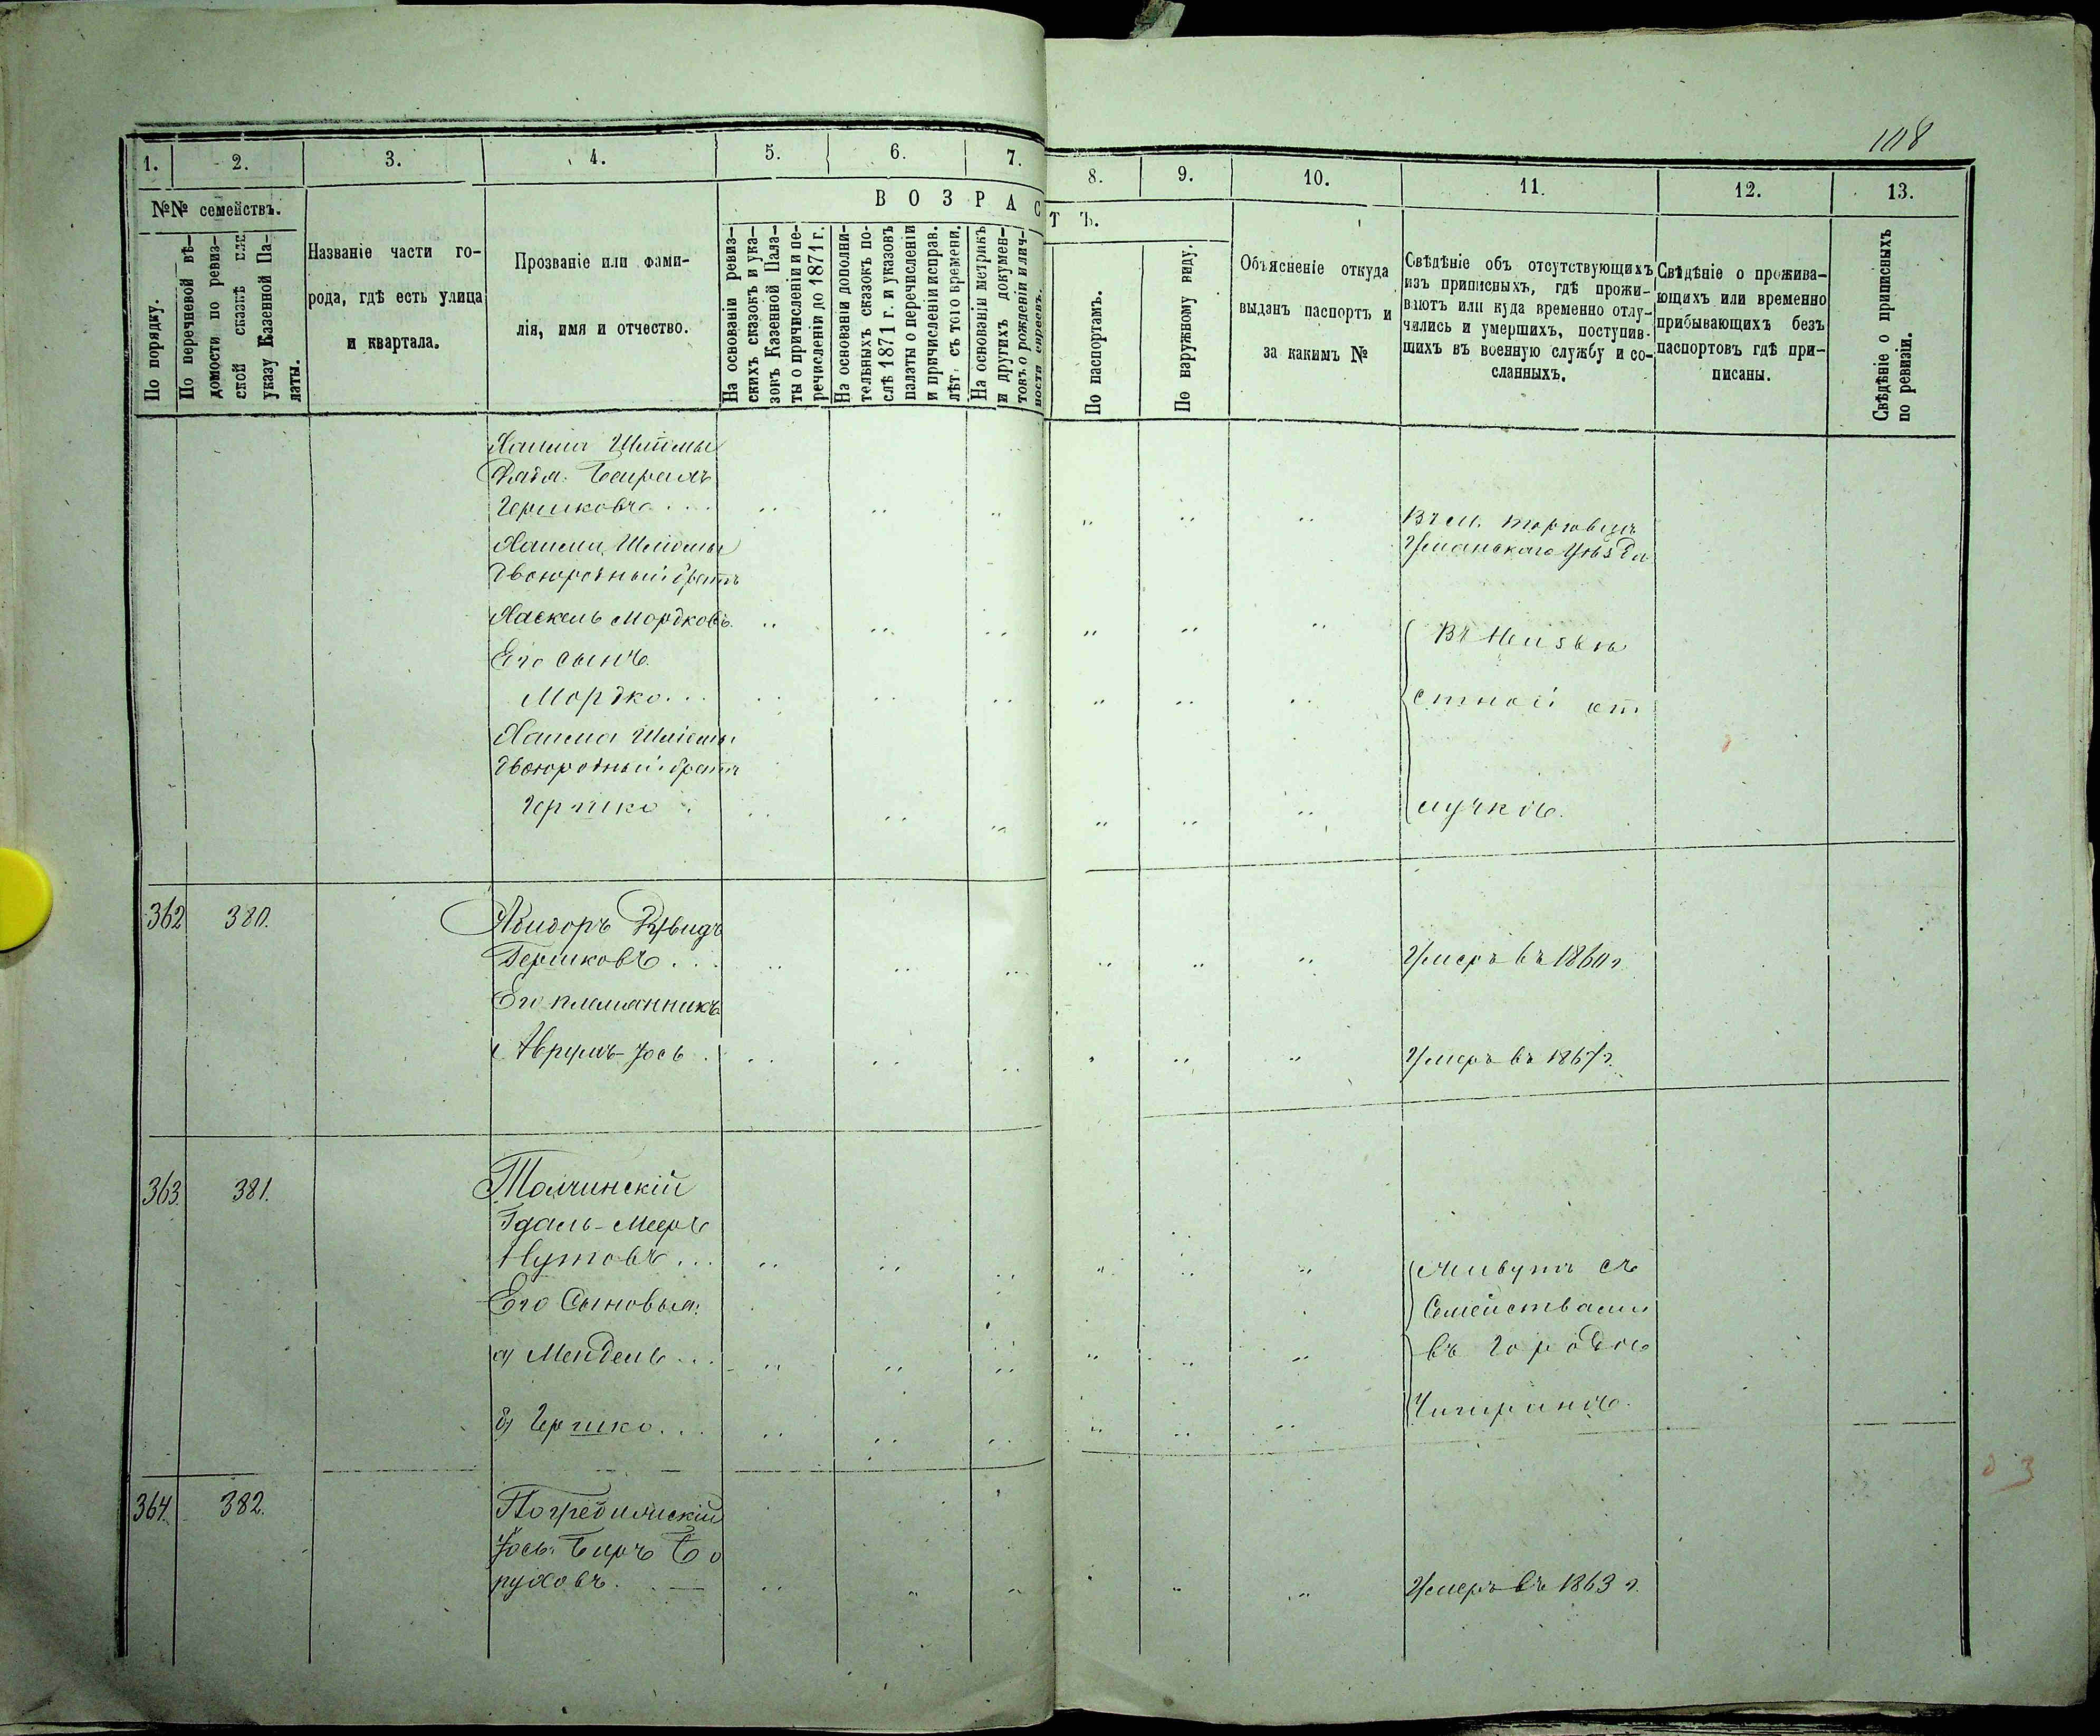 108
1. 2. 3. 4. 5. 6. 7. 8. 9. 10. 11. 12. 13.
№№ семействъ.
По порядку.
По перечневой вѣ-
домости по ревиз-
ской сказкѣ или
указу Казенной Па-
латы.
Названіе части го-
рода, гдѣ есть улица
и квартала.
Прозваніе или фами-
лія, имя и отчество.
ВОЗРАСТЪ.
На основаніи ревиз-
скихъ сказокъ и ука-
зовъ Казенной Пала-
ты о причисленіи и пе-
речисленіи до 1871 г.
На основаніи дополни-
тельныхъ сказокъ по-
слѣ 1871 г. и указовъ
палаты о перечисленіи
и причисленіи исправ.
лѣт. съ того времени.
На основаніи метрикъ
и другихъ докумен-
товъ о рожденіи и лич-
ности евреевъ.
По паспортамъ.
По наружному виду.
Объясненіе откуда
выданъ паспортъ и
за какимъ №
Свѣдѣніе объ отсутствующихъ
изъ приписныхъ, гдѣ прожи-
ваютъ или куда временно отлу-
чились и умершихъ, поступив-
шихъ въ военную службу и со-
сланныхъ.
Свѣдѣніе о прожива-
ющихъ или временно
прибывающихъ безъ
паспортовъ гдѣ при-
писаны.
Свѣдѣніе о приписныхъ
по ревизіи.
Хаима Шлiомы
Дядя
Гершковъ
Въ м. Торговицѣ
Уманскаго Уѣзда
Хаима Шлiомы
двоюродный братъ
Хаскель Мордковъ
Его сынъ
Мордко
Въ неизвѣ
стной от
лучкѣ.
Хаима Шлiомы
двоюродный братъ
Гершко
362 380.
Давидъ
Гершковъ
Умеръ въ 1860 г.
Его племянникъ
Аврумъ-Iось
Умеръ въ 1867 г.
363. 381.
Толчинскій
Гдаль-Мееръ
Нутовъ
Его Сыновья:
а) Мендель
б) Гершко
Живутъ съ
Семействами
въ городѣ
Чигиринѣ.
364. 382.
Погребицкій
Iось-Беръ Бо
руховъ
Умеръ въ 1863 г.